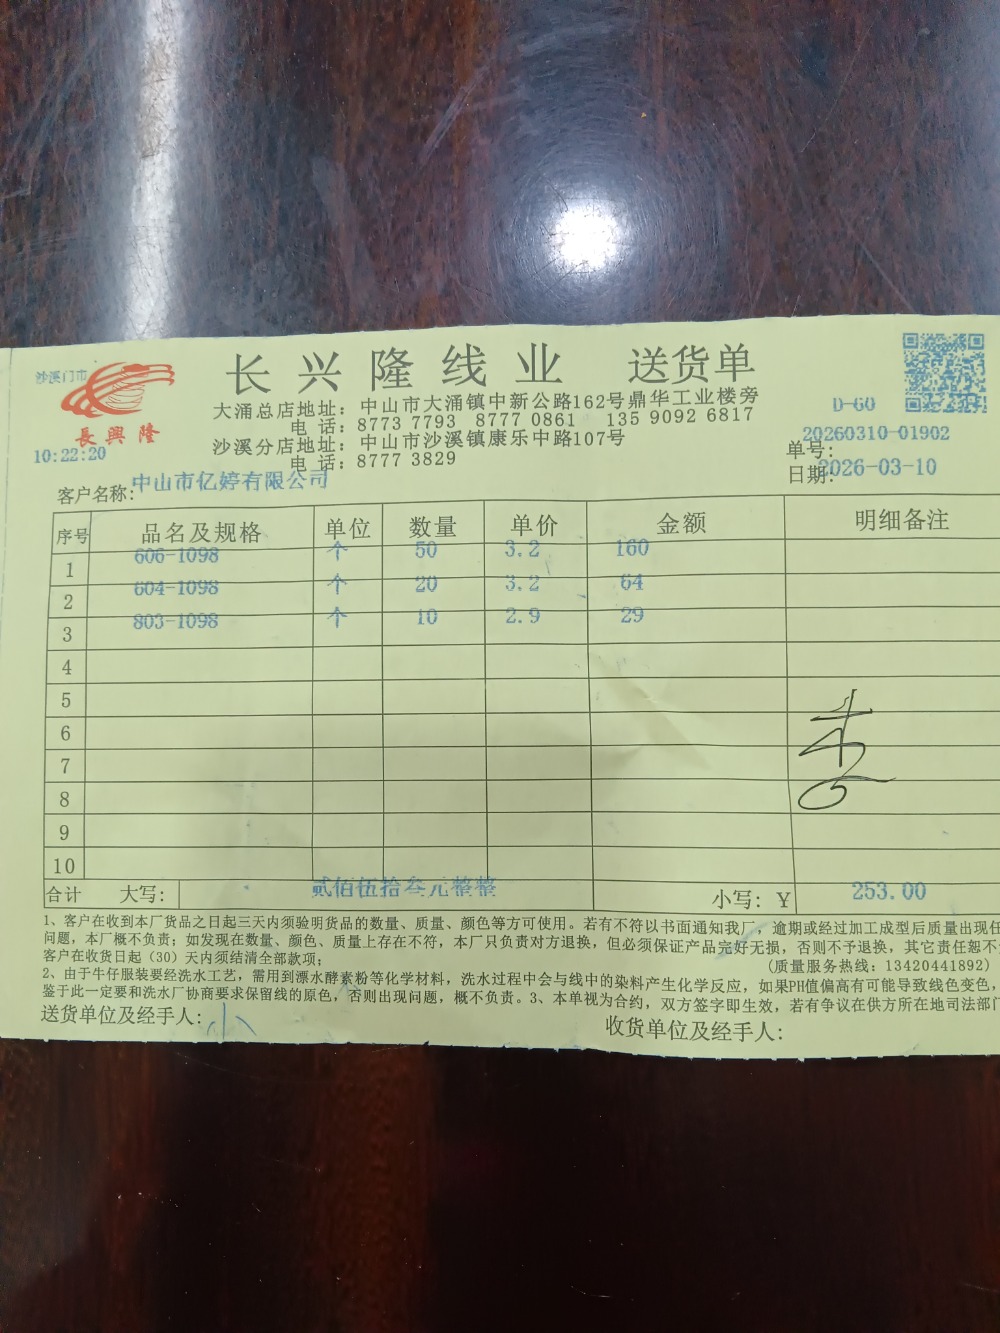 沙溪门市
長興隆
10:22:20
长兴隆线业 送货单
大涌总店地址：中山市大涌镇中新公路162号鼎华工业楼旁
电 话：8773 7793 8777 0861 135 9092 6817
沙溪分店地址：中山市沙溪镇康乐中路107号
电 话：8777 3829
D-60
单号：20260310-01902
日期：2026-03-10
客户名称：中山市亿婷有限公司
序号 品名及规格 单位 数量 单价 金额 明细备注
1 606-1098 个 50 3.2 160
2 604-1098 个 20 3.2 64
3 803-1098 个 10 2.9 29
4
5
6
7
8
9
10
合计 大写：贰佰伍拾叁元整整 小写：¥ 253.00
1、客户在收到本厂货品之日起三天内须验明货品的数量、质量、颜色等方可使用。若有不符以书面通知我厂，逾期或经过加工成型后质量出现任
问题，本厂概不负责；如发现在数量、颜色、质量上存在不符，本厂只负责对方退换，但必须保证产品完好无损，否则不予退换，其它责任恕不
客户在收货日起（30）天内须结清全部款项；
（质量服务热线：13420441892）
2、由于牛仔服装要经洗水工艺，需用到漂水酵素粉等化学材料，洗水过程中会与线中的染料产生化学反应，如果PH值偏高有可能导致线色变色，
鉴于此一定要和洗水厂协商要求保留线的原色，否则出现问题，概不负责。3、本单视为合约，双方签字即生效，若有争议在供方所在地司法部门
送货单位及经手人：小
收货单位及经手人：